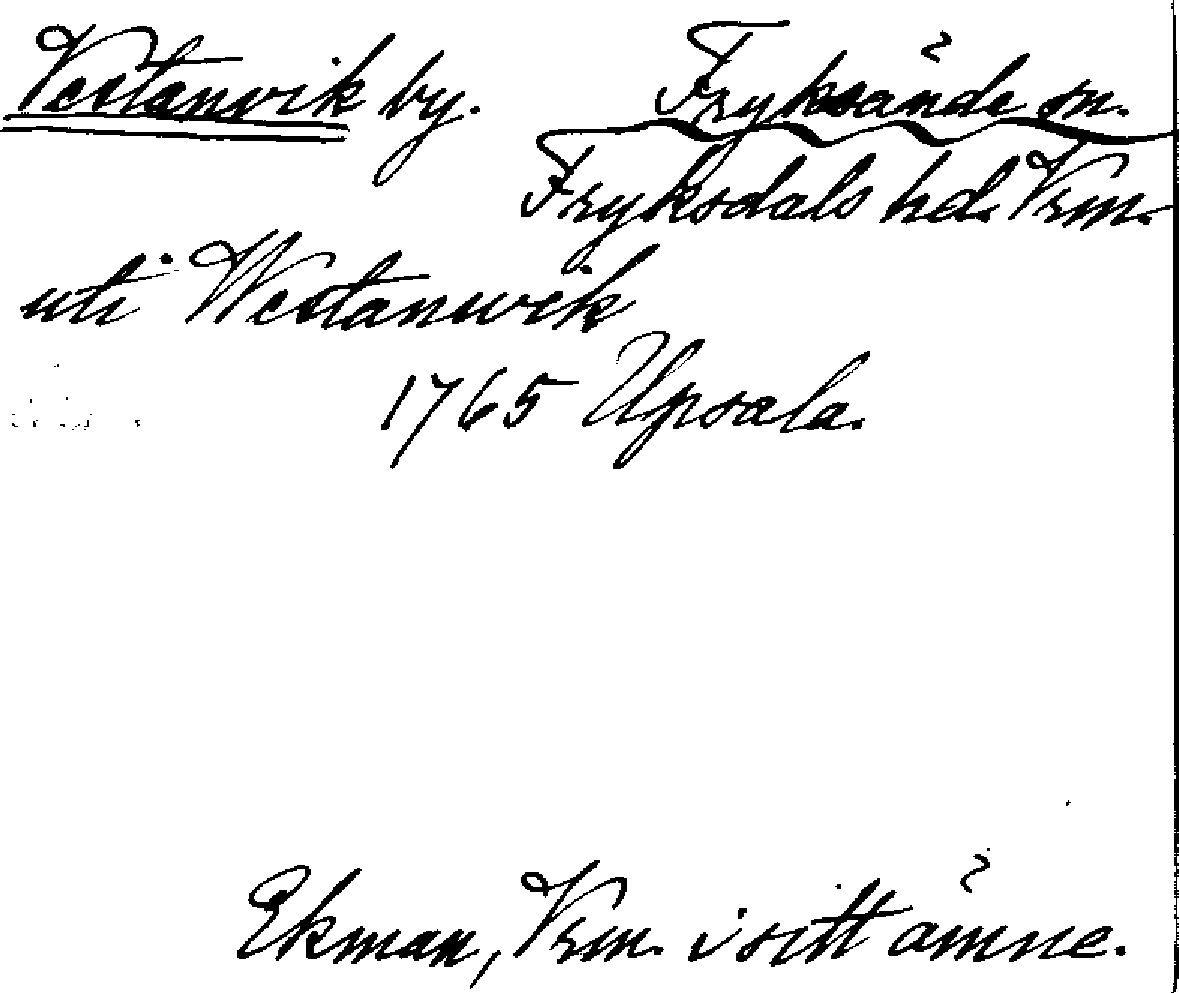 Vestanvik by. Fryksände sn.
Fryksdals hd. Vrm.
uti Westanwik
1765 Upsala.
Ekman, Vrm. i sitt ämne.